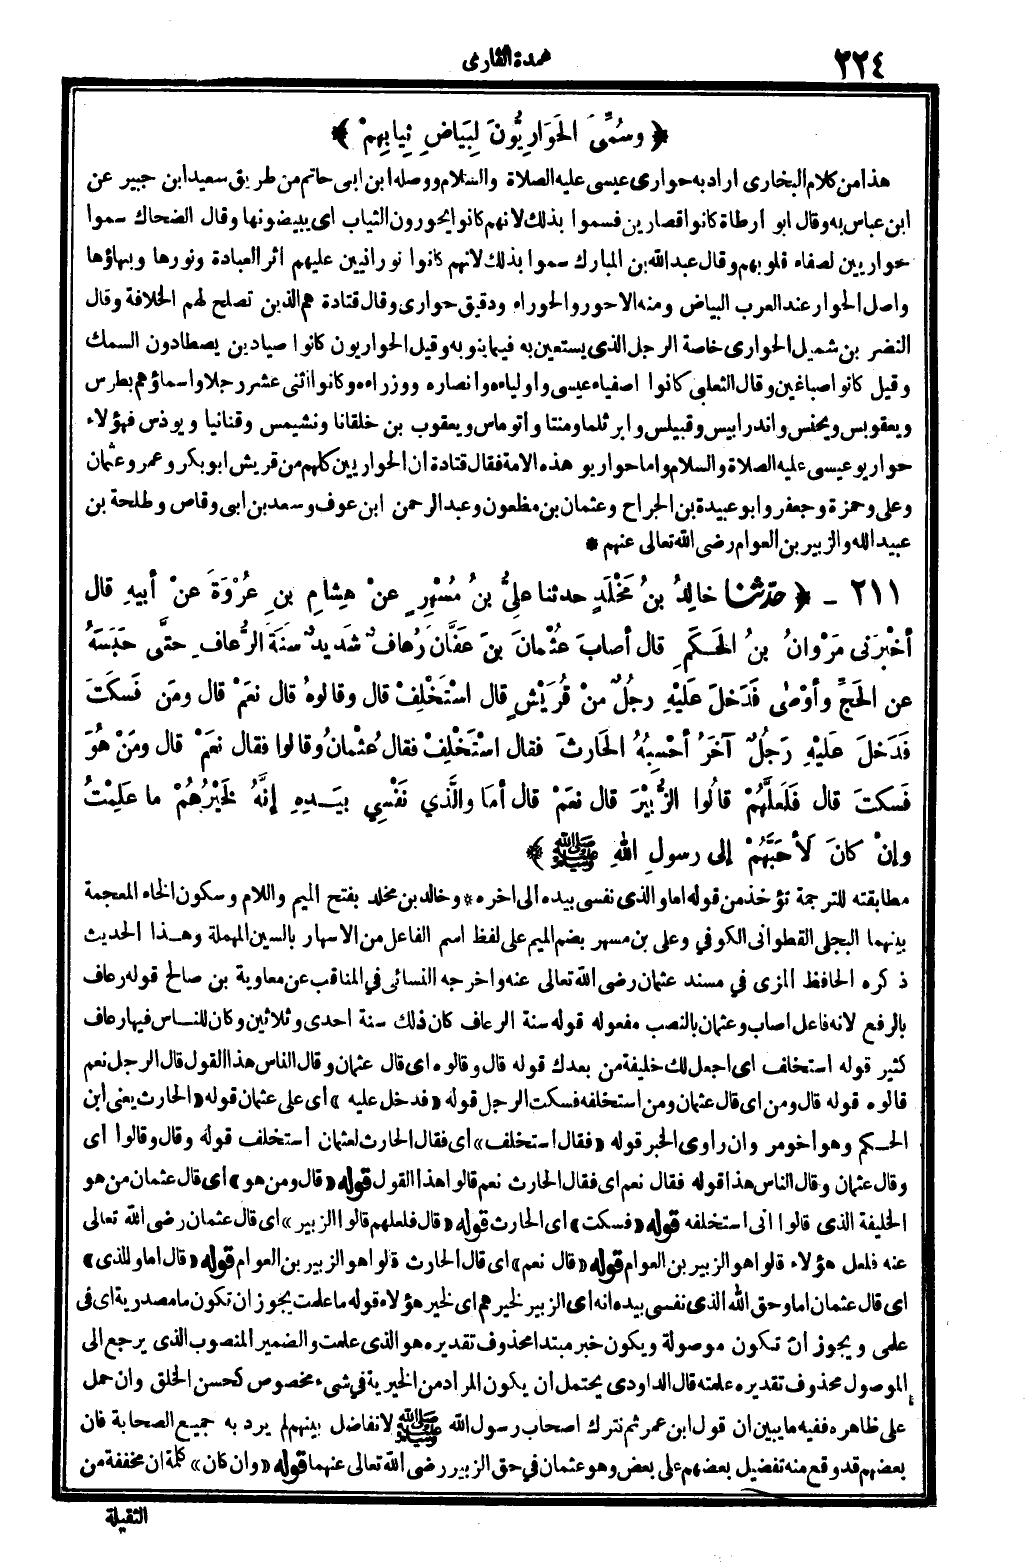 ٢٢٤
عمدة القارى
﴿ وسُمِّيَ الحَوَارِيُّونَ لِبَيَاضِ ثِيابِهِمْ ﴾
هذا من كلام البخارى اراد به حوارى عيسى عليه الصلاة والسلام ووصله ابن ابى حاتم من طريق سعيد ابن جبير عن
ابن عباس به وقال ابو أرطاة كانوا قصارين فسموا بذلك لانهم كانوا يحورون الثياب اى يبيضونها وقال الضحاك سموا
حواريين لصفاء قلوبهم وقال عبد الله بن المبارك سموا بذلك لانهم كانوا نورانيين عليهم أثر العبادة ونورها وبهاؤها
واصل الحوار عند العرب البياض ومنه الاحور والحوراء ودقيق حوارى وقال قتادة هم الذين تصلح لهم الخلافة وقال
النضر بن شميل الحوارى خاصة الرجل الذى يستعين به فيما ينوبه وقيل الحواريون كانوا صيادين يصطادون السمك
وقيل كانوا صباغين وقال الثعلبى كانوا اصفياء عيسى واولياءه وانصاره ووزراءه وكانوا اثنى عشر رجلا واسماؤهم بطرس
ويعقوبس ويحنس واندرابيس وقبيلس وابرثلما ومنتا وأتوماس ويعقوب بن خلقانا ونشيمس وقنانيا ويوذس فهؤلاء
حواريو عيسى عليه الصلاة والسلام واما حواريو هذه الامة فقال قتادة ان الحواريين كلهم من قريش ابو بكر وعمر وعثمان
وعلى وحمزة وجعفر وابو عبيدة بن الجراح وعثمان بن مظعون وعبد الرحمن ابن عوف وسعد بن ابى وقاص وطلحة بن
عبيد الله والزبير بن العوام رضى الله تعالى عنهم *
٢١١ - ﴿ حدثنا خالِدُ بنُ مَخْلَدٍ حدثنا علِيُّ بنُ مُسْهِرٍ عنْ هِشامِ بنِ عُرْوَةَ عنْ أبيهِ قال
أخْبَرَنى مَرْوانُ بنُ الحَكَمِ قال أصابَ عُثْمانَ بنَ عَفَّانَ رُعافٌ شَدِيدٌ سَنَةَ الرُّعافِ حتَّى حَبَسَهُ
عنِ الحَجِّ وأوْصٰى فَدَخلَ عَلَيْهِ رجُلٌ منْ قُرَيْشٍ قال اسْتَخْلِفْ قال وقالوهُ قال نعَمْ قال ومَن فَسكَتَ
فَدَخلَ عَلَيْهِ رَجُلٌ آخَرُ أحْسِبُهُ الحَارثَ فقال اسْتَخْلِفْ فقال عُثْمانُ وقالوا فقال نعَمْ قال ومَنْ هُوَ
فَسكتَ قال فَلَعلَّهُمْ قالُوا الزُّبيْرَ قال نعَمْ قال أمَا والَّذي نَفْسِي بيَدِهِ إنَّهُ لَخَيْرُهُمْ ما عَلِمْتُ
وإنْ كانَ لأَحَبَّهُمْ إلى رسولِ اللهِ ﷺ ﴾
مطابقته للترجمة تؤخذ من قوله اما والذى نفسى بيده الى اخره * وخالد بن مخلد بفتح الميم واللام وسكون الخاء المعجمة
بينهما البجلى القطوانى الكوفي وعلى بن مسهر بضم الميم على لفظ اسم الفاعل من الاسهار بالسين المهملة وهذا الحديث
ذكره الحافظ المزى في مسند عثمان رضى الله تعالى عنه واخرجه النسائى في المناقب عن معاوية بن صالح قوله رعاف
بالرفع لانه فاعل اصاب وعثمان بالنصب مفعوله قوله سنة الرعاف كان ذلك سنة احدى وثلاثين وكان للناس فيها رعاف
كثير قوله استخلف اى اجعل لك خليفة من بعدك قوله قال وقالوه اى قال عثمان وقال الناس هذا القول قال الرجل نعم
قالوه قوله قال ومن اى قال عثمان ومن استخلفه فسكت الرجل قوله «فدخل عليه» أى على عثمان قوله «الحارث يعنى ابن
الحكم وهو اخو مروان راوى الخبر قوله «فقال استخلف» اى فقال الحارث لعثمان استخلف قوله وقال وقالوا اى
وقال عثمان وقال الناس هذا قوله فقال نعم اى فقال الحارث نعم قالوا هذا القول قوله «قال ومن هو» أى قال عثمان من هو
الخليفة الذى قالوا انى استخلفه قوله «فسكت» اى الحارث قوله «قال فلعلهم قالوا الزبير» اى قال عثمان رضى الله تعالى
عنه فلعل هؤلاء قالوا هو الزبير بن العوام قوله «قال نعم» اى قال الحارث قالوا هو الزبير بن العوام قوله «قال اما والذى»
اى قال عثمان اما وحق الله الذى نفسى بيده انه اى الزبير لخيرهم اى لخير هؤلاء قوله ما علمت يجوز ان تكون ما مصدرية اى فى
علمى ويجوز ان تكون موصولة ويكون خبر مبتدا محذوف تقديره هو الذى علمت والضمير المنصوب الذى يرجع الى
الموصول محذوف تقديره علمته قال الداودى يحتمل أن يكون المراد من الخيرية في شىء مخصوص كحسن الخلق وان حمل
على ظاهره ففيه ما يبين ان قول ابن عمر ثم نترك اصحاب رسول الله ﷺ لا نفاضل بينهم لم يرد به جميع الصحابة فان
بعضهم قد وقع منه تفضيل بعضهم على بعض وهو عثمان في حق الزبير رضى الله تعالى عنهما قوله «وان كان» كلمة ان مخففة من
الثقيلة